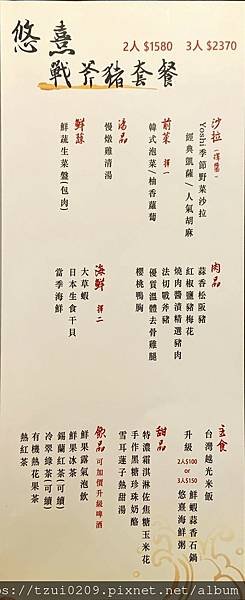 悠熹
戰斧豬套餐
2人 $1580 3人 $2370
沙拉（擇醬一）
Yoshi季節野菜沙拉
經典凱薩/人氣胡麻
前菜 擇一
韓式泡菜/柚香蘿蔔
湯品
慢燉雞清湯
鮮蔬
鮮蔬生菜盤(包肉)
肉品
蒜香松阪豬
紅椒鹽豬梅花
燒肉醬漬精選豬肉
法切戰斧豬
優質溫體去骨雞腿
櫻桃鴨胸
海鮮 擇二
大草蝦
日本生食干貝
當季海鮮
主食
台灣越光米飯
升級
2人$100 or 3人$150
鮮蝦蒜香石鍋
悠熹海鮮粥
甜品
特濃霜淇淋佐焦糖玉米花
手作黑糖珍珠奶酪
雪耳蓮子熱甜湯
飲品 可加價升級啤酒
鮮果露氣泡飲
鮮果冰茶
錫蘭紅茶(可續)
冷翠綠茶(可續)
有機熱花果茶
熱紅茶
https://tzui0209.pixnet.net/album